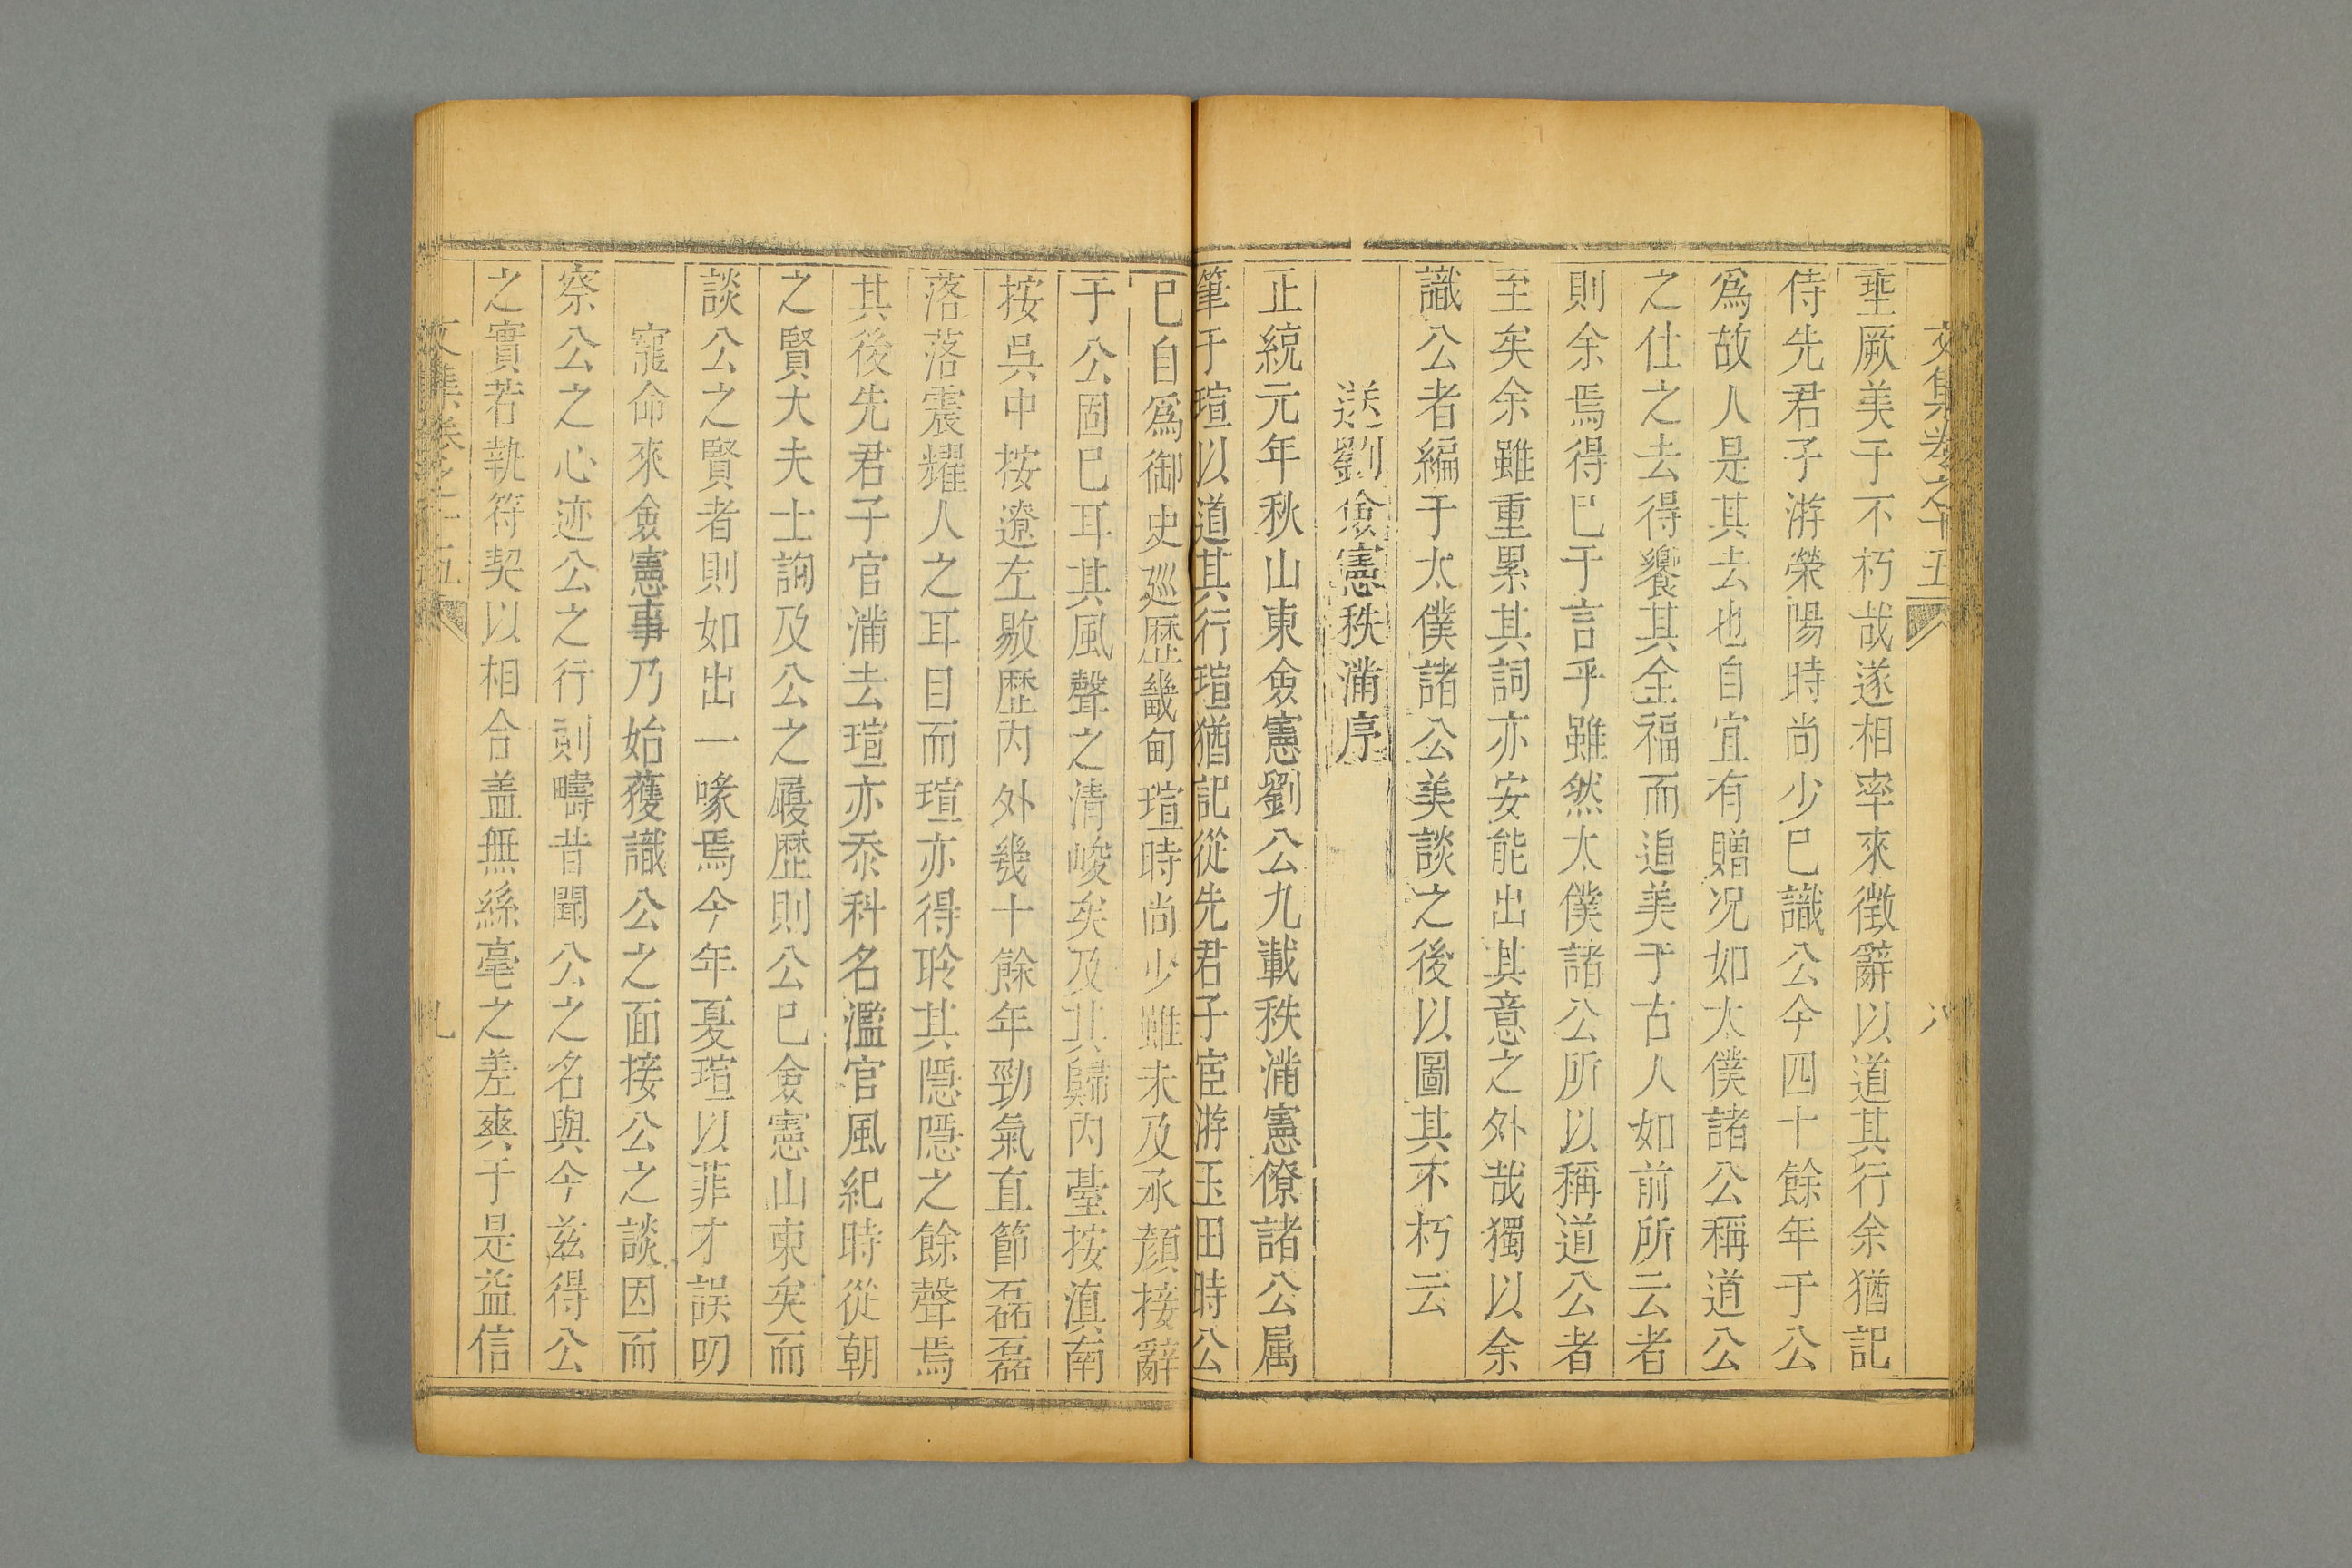 文集卷之十五
八
埀厥美于不朽哉遂相率來徵辭以道其行余猶記
侍先君子游榮陽時尚少巳識公今四十餘年于公
爲故人是其去也自宜有贈况如太僕諸公稱道公
之仕之去得饗其全福而追美于古人如前所云者
則余焉得巳于言乎雖然太僕諸公所以稱道公者
至矣余雖重累其詞亦安能出其意之外哉獨以余
識公者編于太僕諸公美談之後以圖其不朽云
送劉僉憲秩滿序
正統元年秋山東僉憲劉公九載秩滿憲僚諸公属
筆于瑄以道其行瑄猶記從先君子宦游玉田時公
巳自爲御史廵歴畿甸瑄時尚少雖未及承顏接辭
于公固巳耳其風聲之清峻矣及其歸内臺按滇南
按呉中按遼左敭歴内外幾十餘年勁氣直節磊磊
落落震耀人之耳目而瑄亦得聆其隱隱之餘聲焉
其後先君子官滿去瑄亦忝科名濫官風紀時從朝
之賢大夫士詢及公之履歴則公巳僉憲山東矣而
談公之賢者則如出一喙焉今年夏瑄以菲才誤叨
寵命來僉憲事乃始獲識公之面接公之談因而
察公之心迹公之行則疇昔聞公之名與今兹得公
之實若執符契以相合盖無絲毫之差爽于是益信
文集卷之十五
九